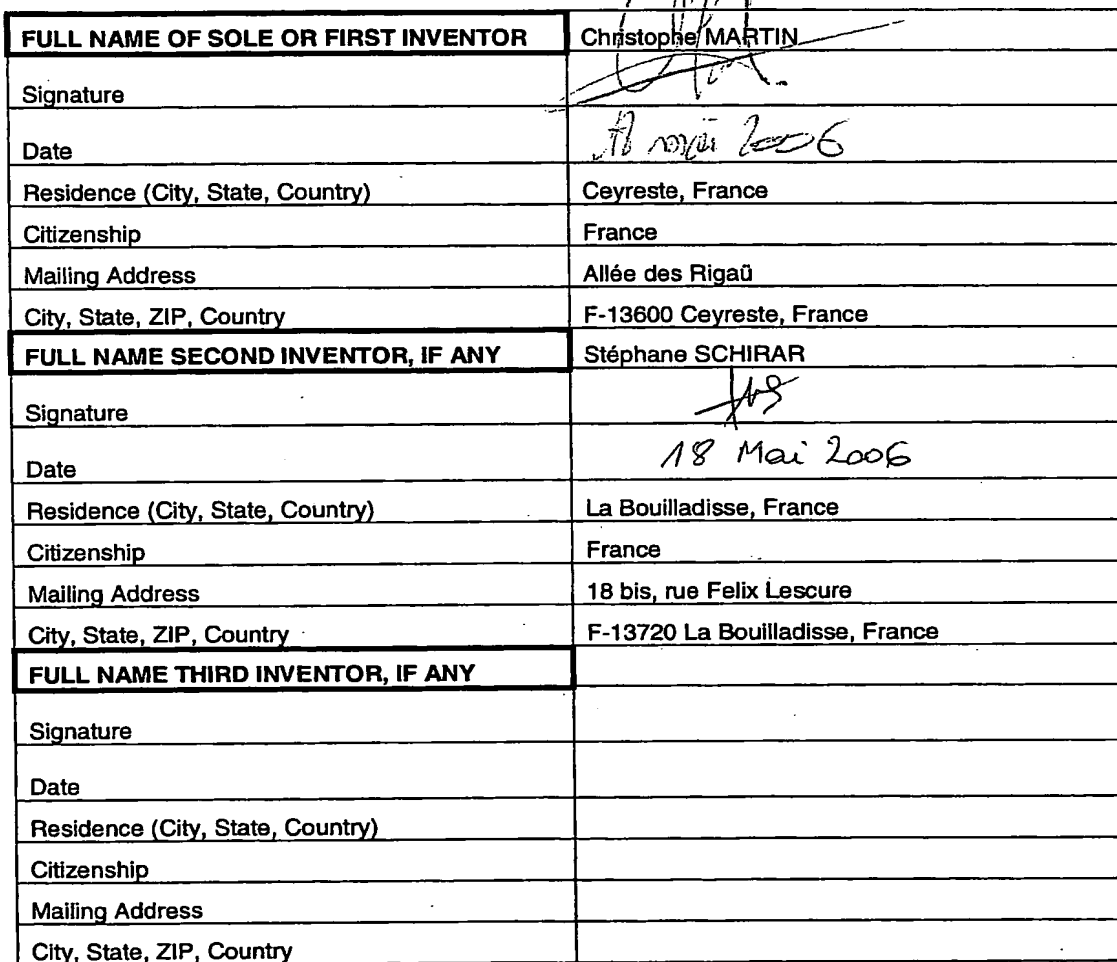 FULL NAME OF SOLE OR FIRST INVENTOR Christophe MARTIN
Signature
Date 18 mai 2006
Residence (City, State, Country) Ceyreste, France
Citizenship France
Mailing Address Allée des Rigaü
City, State, ZIP, Country F-13600 Ceyreste, France
FULL NAME SECOND INVENTOR, IF ANY Stéphane SCHIRAR
Signature
Date 18 Mai 2006
Residence (City, State, Country) La Bouilladisse, France
Citizenship France
Mailing Address 18 bis, rue Felix Lescure
City, State, ZIP, Country F-13720 La Bouilladisse, France
FULL NAME THIRD INVENTOR, IF ANY
Signature
Date
Residence (City, State, Country)
Citizenship
Mailing Address
City, State, ZIP, Country